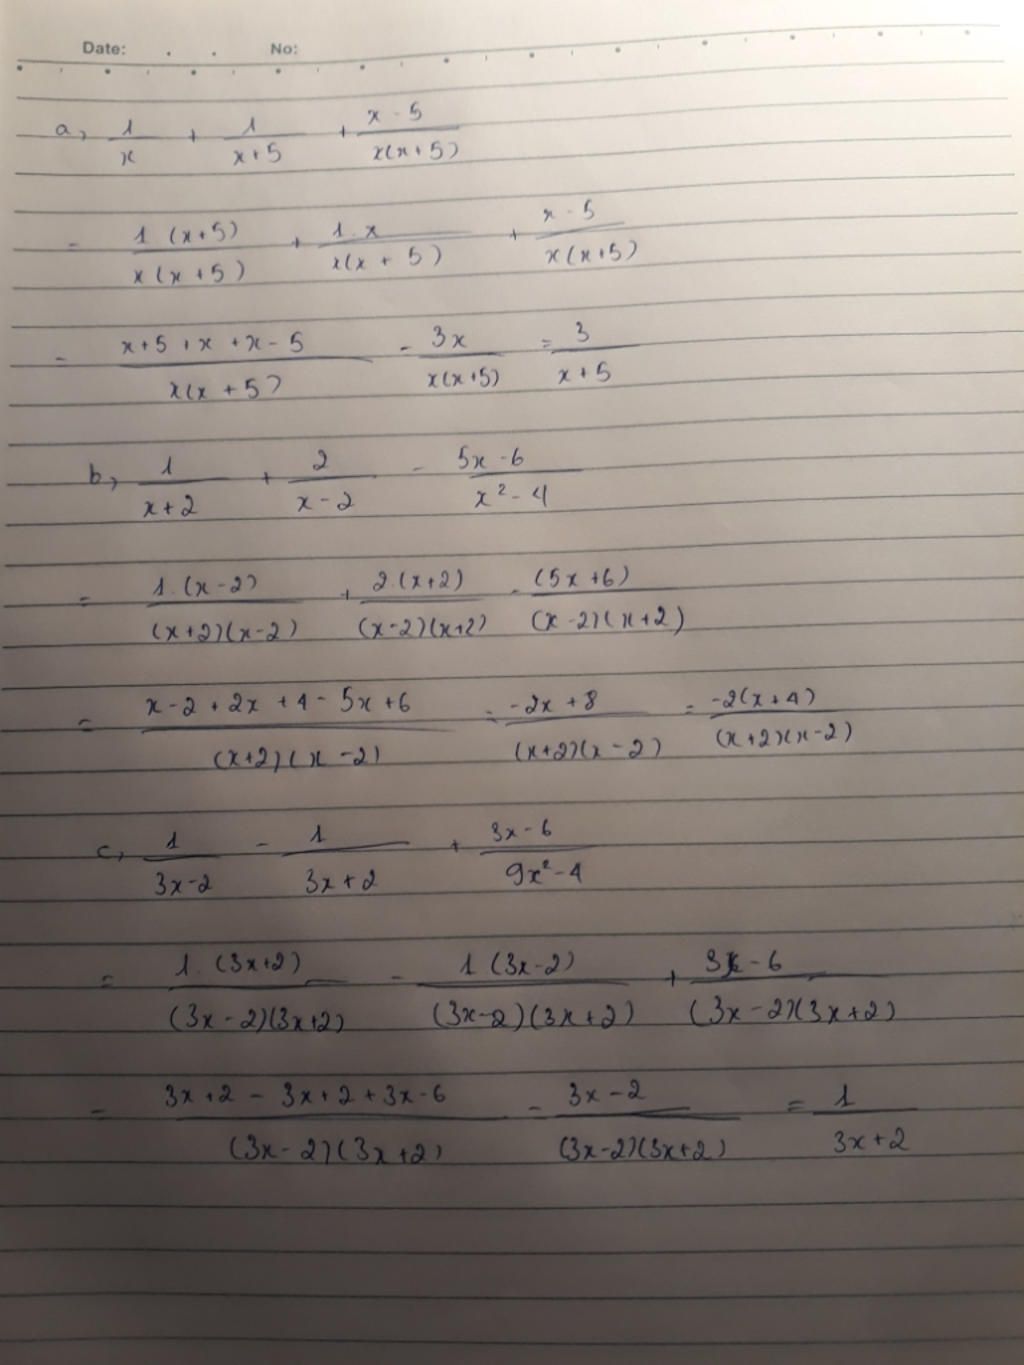 Date: . . No:
a, 1/x + 1/(x+5) + (x-5)/(x(x+5))
= (1 (x+5))/(x(x+5)) + (1.x)/(x(x+5)) + (x-5)/(x(x+5))
= (x+5+x+x-5)/(x(x+5)) = 3x/(x(x+5)) = 3/(x+5)
b, 1/(x+2) + 2/(x-2) - (5x-6)/(x²-4)
= (1.(x-2))/((x+2)(x-2)) + (2.(x+2))/((x-2)(x+2)) - (5x+6)/((x-2)(x+2))
= (x-2+2x+4-5x+6)/((x+2)(x-2)) = (-2x+8)/((x+2)(x-2)) = (-2(x+4))/((x+2)(x-2))
c, 1/(3x-2) - 1/(3x+2) + (3x-6)/(9x²-4)
= (1.(3x+2))/((3x-2)(3x+2)) - (1(3x-2))/((3x-2)(3x+2)) + (3x-6)/((3x-2)(3x+2))
= (3x+2-3x+2+3x-6)/((3x-2)(3x+2)) = (3x-2)/((3x-2)(3x+2)) = 1/(3x+2)